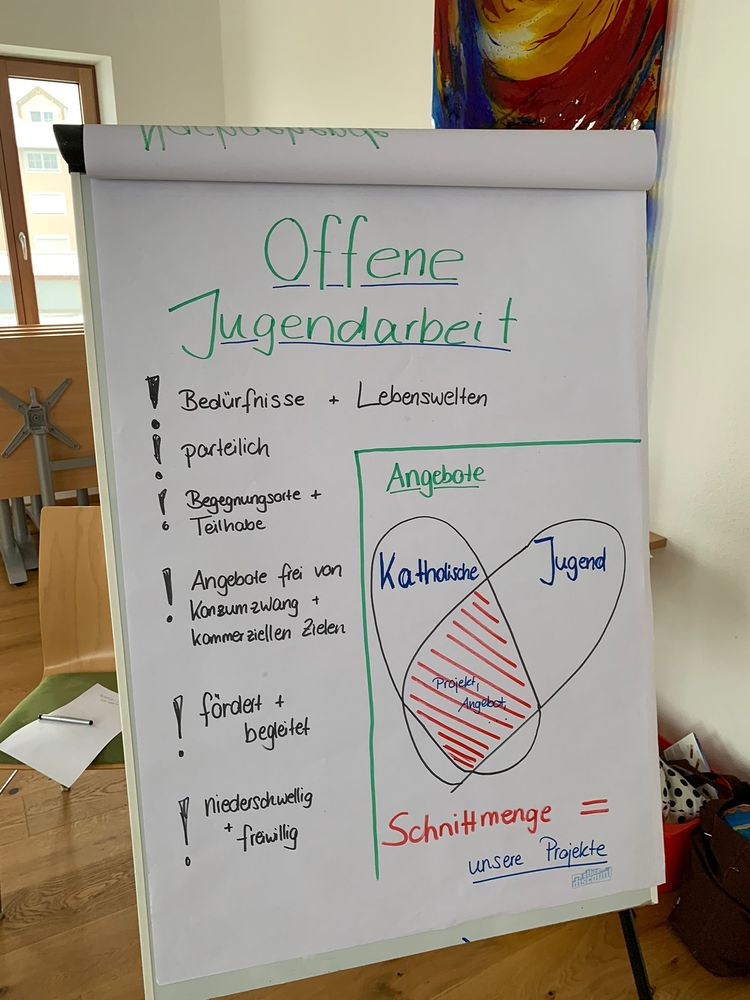 Offene
Jugendarbeit
! Bedürfnisse + Lebenswelten
! parteilich
! Begegnungsorte +
Teilhabe
! Angebote frei von
Konsumzwang +
kommerziellen Zielen
! fördert +
begleitet
! niederschwellig
+ freiwillig
Angebote
Katholische
Jugend
Projekt,
Angebot
Schnittmenge =
unsere Projekte